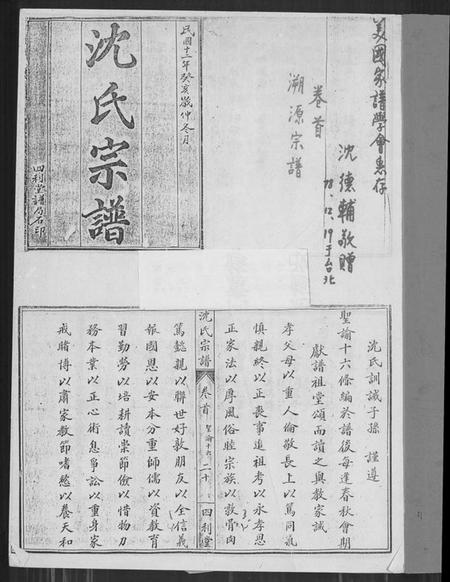 美國家譜學會惠存
沈德輔敬贈
78、12、19于台北
卷首
溯源宗譜
民國十二年癸亥歲仲冬月
沈氏宗譜
四利堂譜局石印
沈氏訓誡子孫 謹遵
聖諭十六條編於譜後每逢春秋會期
獻譜祖堂頌而讀之與教家誡
孝父母以重人倫敬長上以篤同氣
慎親終以正喪事追祖考以永孝思
正家法以厚風俗睦宗族以敦骨肉
沈氏宗譜 卷首 聖諭十六 二十 四利堂
篤懿親以聯世好敦朋友以全信義
報國恩以安本分重師儒以資教育
習勤勞以培耕讀崇節儉以惜物力
務本業以正心術息爭訟以重身家
戒賭博以肅家教節嗜慾以養天和